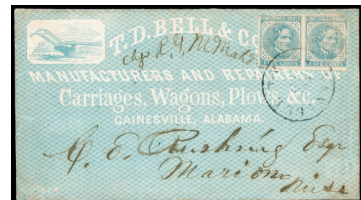 T. D. BELL & Co.
MANUFACTURERS AND REPAIRERS OF
Carriages, Wagons, Plows, &c.
GAINESVILLE, ALABAMA.
FIVE CENTS FIVE CENTS
C. E. Rushing Esqr
Marion
Miss